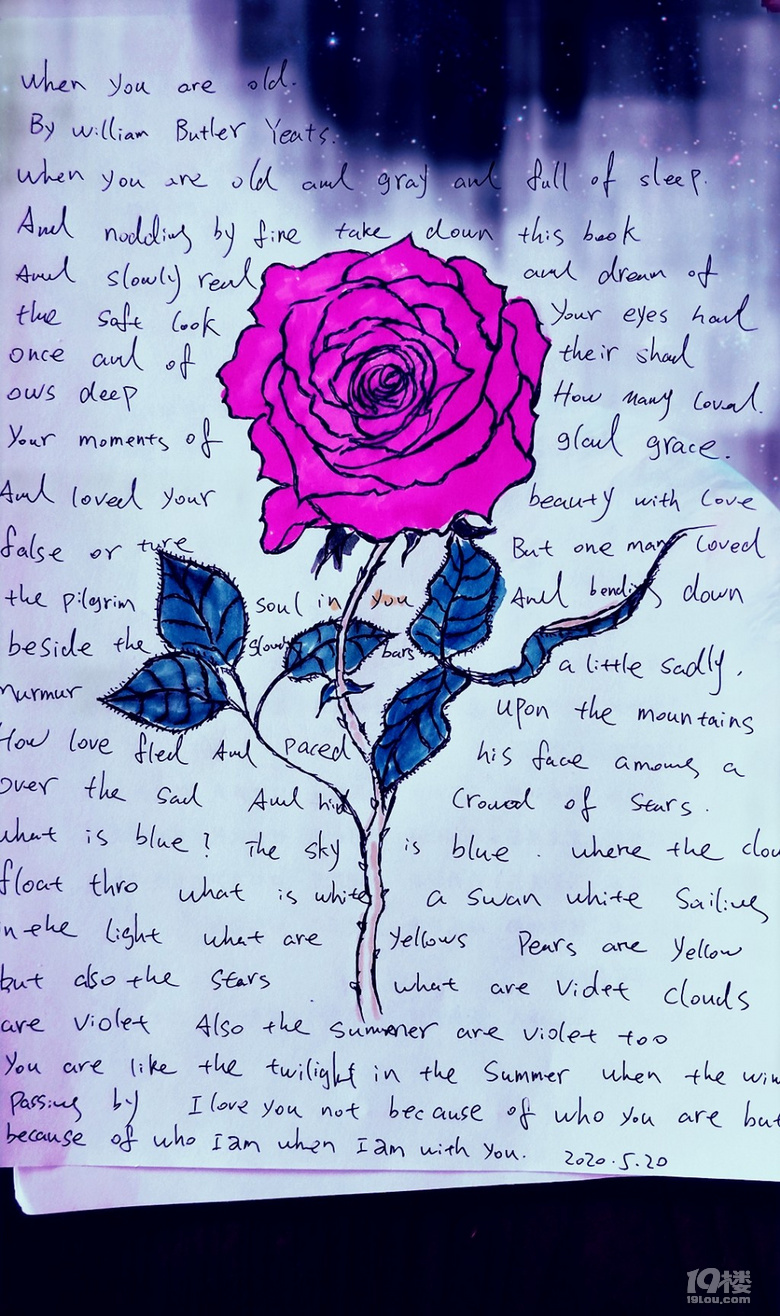 when you are old.
By william Butler Yeats.
when you are old and gray and full of sleep.
And nodding by fine take down this book
And slowly read and dream of
the soft look Your eyes had
once and of their shad
ows deep How many loved.
Your moments of glad grace.
And loved your beauty with love
false or ture But one man loved
the pilgrim soul in you And bending down
beside the glowing bars a little sadly.
murmur upon the mountains
How love fled And paced his face among a
over the sad And hid Crowd of Stars.
what is blue? The sky is blue. where the clou
float thro what is white a swan white Sailing
in the light what are Yellows Pears are Yellow
but also the stars what are Violet clouds
are violet Also the summer are violet too
You are like the twilight in the Summer when the win
Passing by I love you not because of who you are but
because of who I am when I am with you. 2020.5.20
19楼
19lou.com